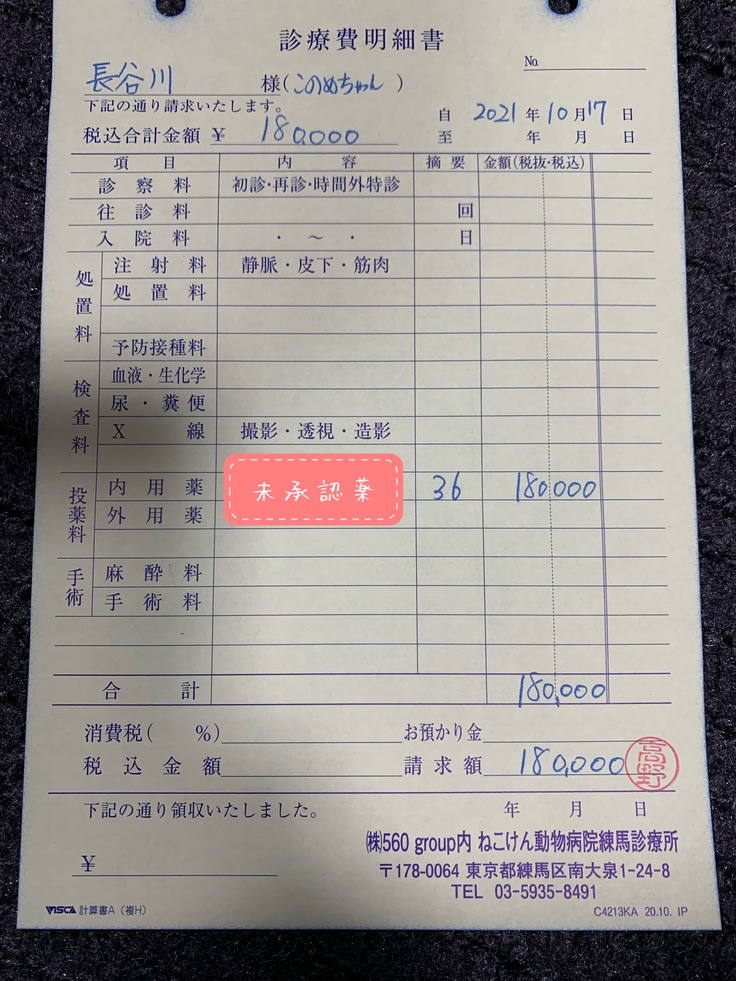 診療費明細書
No.
長谷川 様(このめちゃん)
下記の通り請求いたします。
自 2021年10月17日
税込合計金額 ¥ 180,000
至 年 月 日
項目 内容 摘要 金額(税抜・税込)
診察料 初診・再診・時間外特診
往診料 回
入院料 ・ ～ ・ 日
処置料
注射料 静脈・皮下・筋肉
処置料
予防接種料
検査料
血液・生化学
尿・糞便
X線 撮影・透視・造影
投薬料
内用薬 未承認薬 36 180000
外用薬
手術
麻酔料
手術料
合計 180,000
消費税( %) お預かり金
税込金額 請求額 180,000 高野
下記の通り領収いたしました。 年 月 日
¥
㈱560 group内 ねこけん動物病院練馬診療所
〒178-0064 東京都練馬区南大泉1-24-8
TEL 03-5935-8491
VISCA 計算書A(複H) C4213KA 20.10. IP